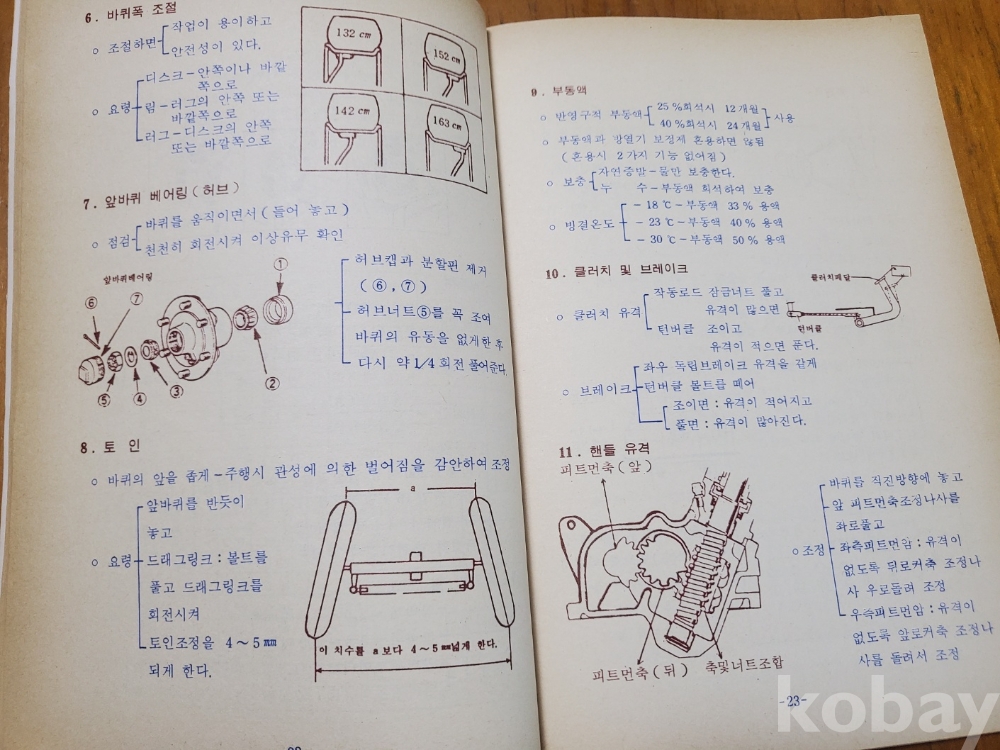 6. 바퀴폭 조절
o 조절하면 작업이 용이하고
안전성이 있다.
o 요령 디스크-안쪽이나 바깥
쪽으로
림-러그의 안쪽 또는
바깥쪽으로
러그-디스크의 안쪽
또는 바깥쪽으로
132 cm
152 cm
142 cm
163 cm
7. 앞바퀴 베어링(허브)
o 점검 바퀴를 움직이면서(들어 놓고)
천천히 회전시켜 이상유무 확인
앞바퀴베어링
① ② ③ ④ ⑤ ⑥ ⑦
허브캡과 분할핀 제거
(⑥, ⑦)
허브너트⑤를 꼭 조여
바퀴의 유동을 없게한 후
다시 약 1/4 회전 풀어준다.
8. 토 인
o 바퀴의 앞을 좁게-주행시 관성에 의한 벌어짐을 감안하여 조정
앞바퀴를 반듯이
놓고
o 요령 드래그링크:볼트를
풀고 드래그링크를
회전시켜
토인조정을 4~5㎜
되게 한다.
a
이 치수를 a보다 4~5㎜넓게 한다.
9. 부동액
o 반영구적 부동액 25%희석시 12개월
40%희석시 24개월 사용
o 부동액과 방열기 보정제 혼용하면 않됨
(혼용시 2가지 기능 없어짐)
o 보충 자연증발-물만 보충한다.
누 수-부동액 희석하여 보충
-18℃-부동액 33% 용액
o 빙결온도 -23℃-부동액 40% 용액
-30℃-부동액 50% 용액
10. 클러치 및 브레이크
작동로드 잠금너트 풀고
o 클러치 유격 유격이 많으면
턴버클 조이고
유격이 적으면 푼다.
클러치페달
턴버클
좌우 독립브레이크 유격을 같게
o 브레이크 턴버클 볼트를 떼어
조이면:유격이 적어지고
풀면:유격이 많아진다.
11. 핸들 유격
피트먼축(앞)
피트먼축(뒤)
축및너트조합
바퀴를 직진방향에 놓고
앞 피트먼축조정나사를
좌로풀고
o 조정 좌측피트먼암:유격이
없도록 뒤로커축 조정나
사 우로돌려 조정
우측피트먼암:유격이
없도록 앞로커축 조정나
사를 돌려서 조정
-23-
kobay